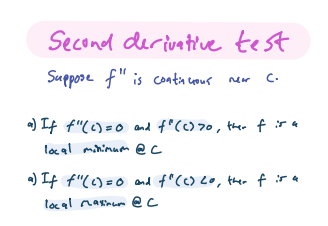 Second derivative test
Suppose f" is continuous near c.
a) If f"(c)=0 and f"(c)>0, then f is a
local minimum @ C
a) If f"(c)=0 and f"(c)<0, then f is a
local maximum @ C